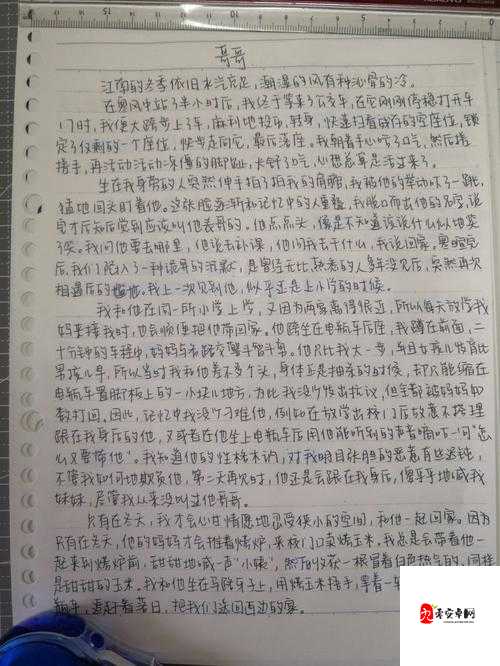 哥哥
江南的冬季依旧水汽充足，潮湿的风有种沁骨的冷。
在寒风中站了半小时后，我终于等来了公交车，在它刚刚停稳打开车
门时，我便大踏步上了车，麻利地投币，转身，快速扫着成存的空座位，锁
定了仅剩的一个座位，快步走向它，最后落座。我朝着手心呵了口气，然后搓
搓手，再活动活动冻僵的脚趾，长舒了口气，心想总算是活过来了。
坐在我身旁的人突然伸手拍了拍我的肩膀，我被他的举动吓了一跳，
猛地回头盯着他。这张脸逐渐和记忆中的人重叠，我脱口而出他的名字，说
完才后知后觉到应该叫他表哥的。他点点头，像是不知道该说什么似地笑
了笑。我问他要去哪里，他说去补课，他问我去干什么，我说回家。寒暄完
后，我们陷入了一种诡异的沉默，是曾经无比熟悉的人多年没见后，突然再次
相遇后的尴尬。我上一次见到他，似乎还是上小学的时候。
我和他在同一所小学上学，又因为两家离得很近，所以每天放学我
妈来接我时，也会顺便把他带回家。他跨坐在电瓶车后座，我蹲在前面，二
十分钟的车程中，妈妈与
他只比我大一岁，
所以当时我和他差不多个头，身体还是抽条的时候，却只能缩在
电瓶车置脚板上的一小块儿地方，为此我没少发出抗议，但全都被妈妈如
数打回。因此，记忆中我没少刁难他，例如在放学出校门后故意不搭理
跟在我身后的他，又或者在他坐上电瓶车后用他能听到的声音嘀咕一句“怎
么又要带他”。我知道他的性格木讷，对我明目张胆的恶意有些迟钝，
不管我如何地欺负他，第二天再次时，他还是会跟在我身后，傻乎乎地喊我
妹妹，尽管我从来没叫过他哥哥。
只有在冬天，我才会心甘情愿地忍受狭小的空间，和他一起回家。因为
只有在冬天，他的妈妈才会推着烤炉，来校门口卖烤玉米。我总是会带着他一
起来到烤炉前，甜甜地喊一声“小姨”，然后收获一根冒着白色热气的，同样
是甜甜的玉米。我和他坐在马路牙子上，用烤玉米搓手，拿着一
瓶车，追赶着落日，把我们送回西边的家。